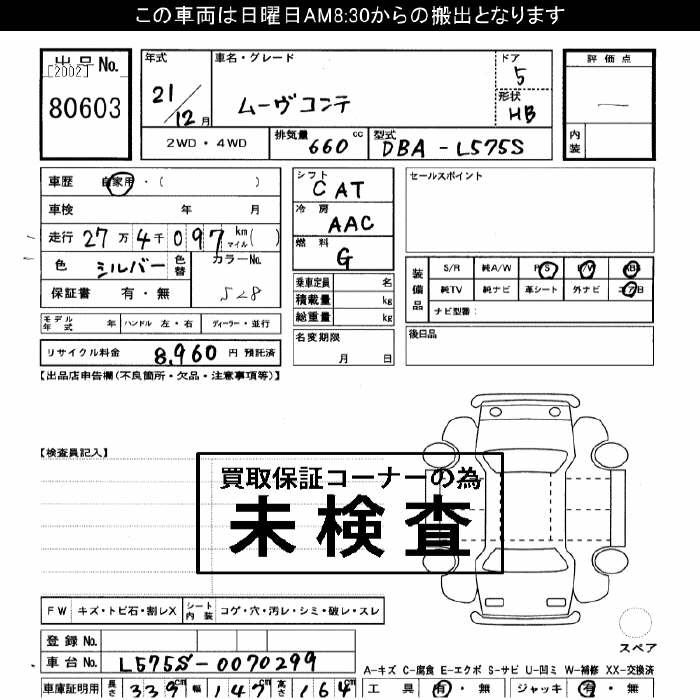 この車両は日曜日AM8:30からの搬出となります
出品 No.
[2002]
80603
年式
21/12月
車名・グレード
ムーヴコンテ
ドア
5
形状
HB
評価点
内装
2WD・4WD
排気量
660 cc
型式
DBA-L575S
車歴 自家用・( )
車検 年 月
走行 27万4千097 km マイル( )
色 シルバー 色替 カラーNo.
保証書 有・無 528
モデル年式 年 ハンドル 左・右 ディーラー・並行
リサイクル料金 8,960 円 預託済
シフト
CAT
冷房
AAC
燃料
G
乗車定員 名
積載量 kg
総重量 kg
名変期限
月 日
セールスポイント
装備品
S/R 純A/W P/S P/W ABS
純TV 純ナビ 革シート 外ナビ エアB
ナビ型番:
後日品
【出品店申告欄(不良箇所・欠品・注意事項等)】
【検査員記入】
買取保証コーナーの為
未検査
FW キズ・トビ石・割レX シート内装 コゲ・穴・汚レ・シミ・破レ・スレ
登録 No.
車台 No. L575S-0070299
車庫証明用 長さ 339cm 幅 147cm 高さ 164cm
スペア
A-キズ C-腐食 E-エクボ S-サビ U-凹ミ W-補修 XX-交換済
工具 有・無 ジャッキ 有・無